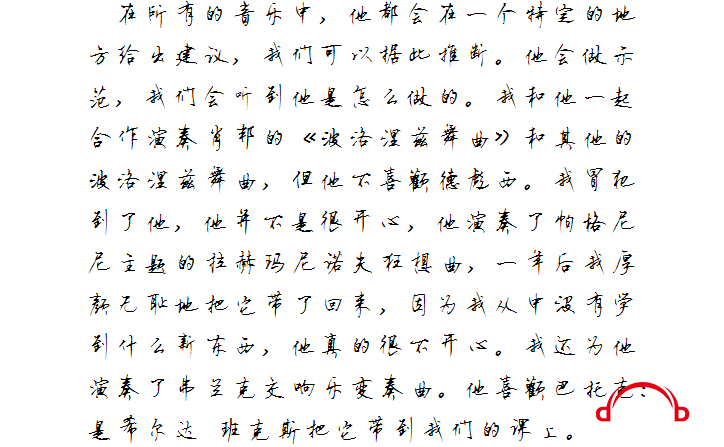 在所有的音乐中，他都会在一个特定的地
方给出建议，我们可以据此推断。他会做示
范，我们会听到他是怎么做的。我和他一起
合作演奏肖邦的《波洛涅兹舞曲》和其他的
波洛涅兹舞曲，但他不喜欢德彪西。我冒犯
到了他，他并不是很开心，他演奏了帕格尼
尼主题的拉赫玛尼诺夫狂想曲，一年后我厚
颜无耻地把它带了回来，因为我从中没有学
到什么新东西，他真的很不开心。我还为他
演奏了弗兰克交响乐变奏曲。他喜欢巴托克：
是希尔达 班克斯把它带到我们的课上。